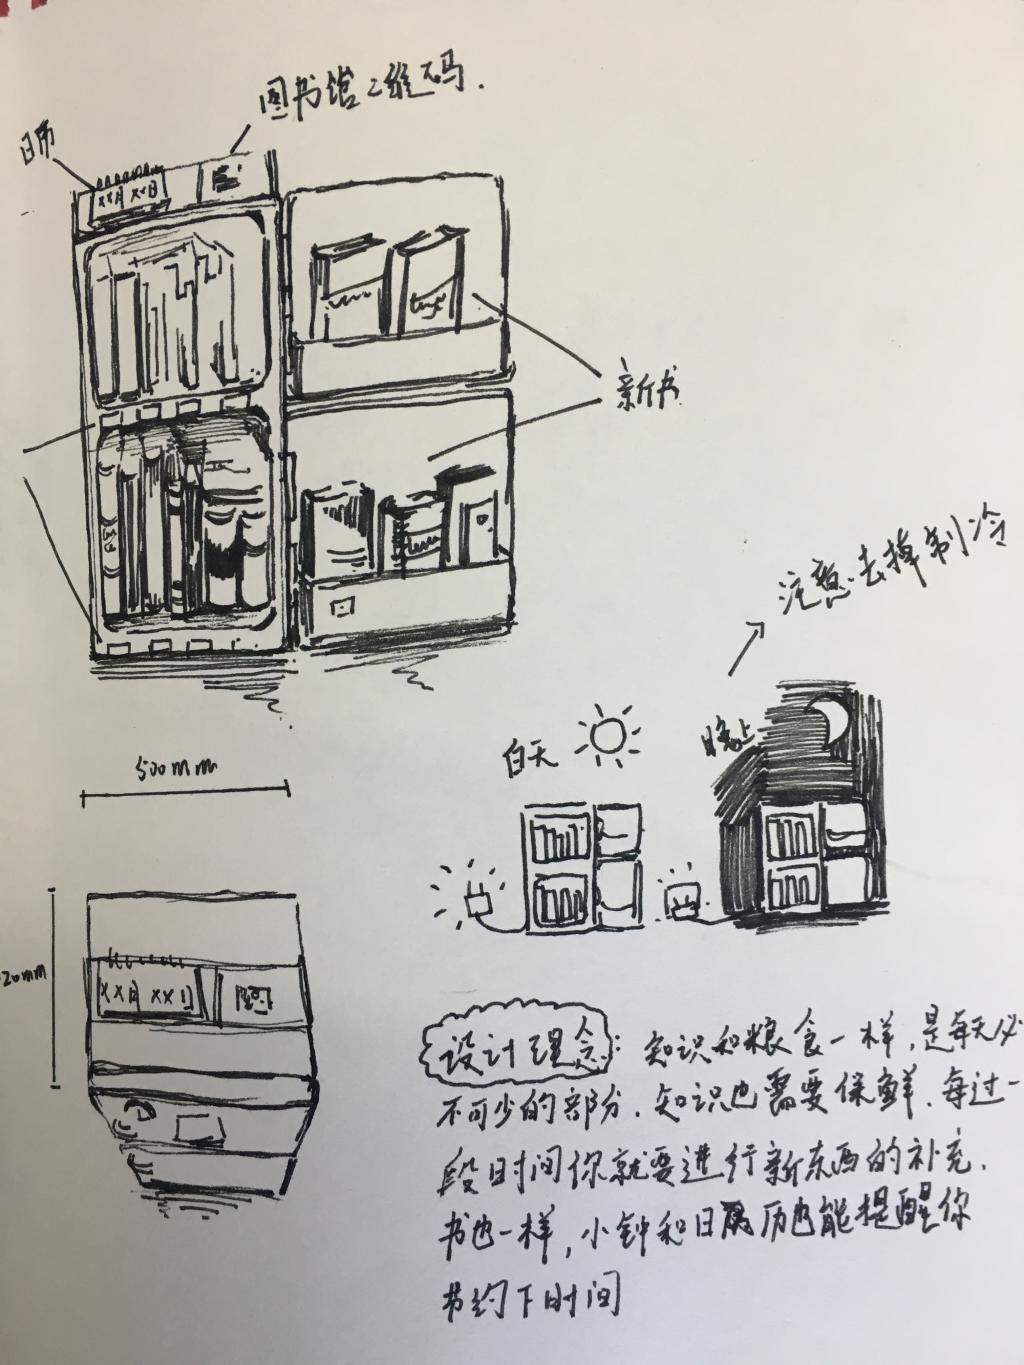 图书馆二维码.
日历
XX月 XX日
新书
注意去掉制冷
白天
晚上
500mm
20mm
XX月 XX日
设计理念: 知识和粮食一样,是每天必
不可少的部分.知识也需要保鲜.每过一
段时间你就要进行新东西的补充.
书也一样,小钟和日历也能提醒你
节约下时间